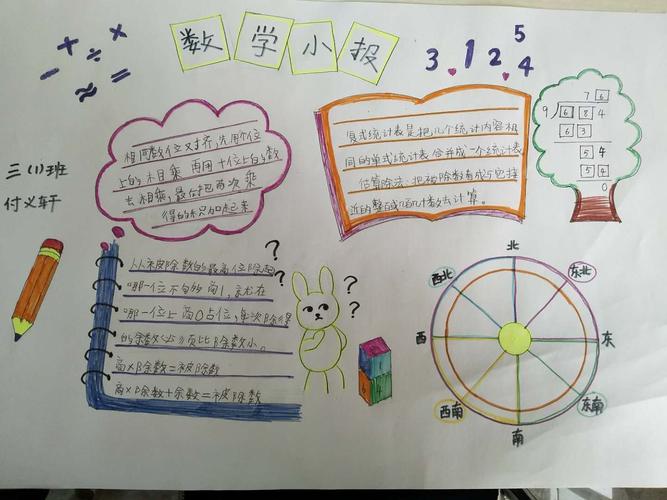 + ÷ × - ≈ =
数学小报
3.12.4 5
三(1)班
付义轩
相同数位对齐,先用个位
上的数相乘 再用十位上的数
去相乘,最后把两次乘
得的积加起来
复式统计表是把几个统计内容相
同的单式统计表合并成一个统计表
估算除法:把被除数看成与它接
近的整百、整十数去计算。
7 6
9 6 8 4
6 3
5 4
5 4
0
从被除数的最高位除起
哪一位不够商1,就在
哪一位上商0占位,每次除得
的余数必须比除数小。
商×除数=被除数
商×除数+余数=被除数
? ? ? ?
北
西北 东北
西 东
西南 东南
南